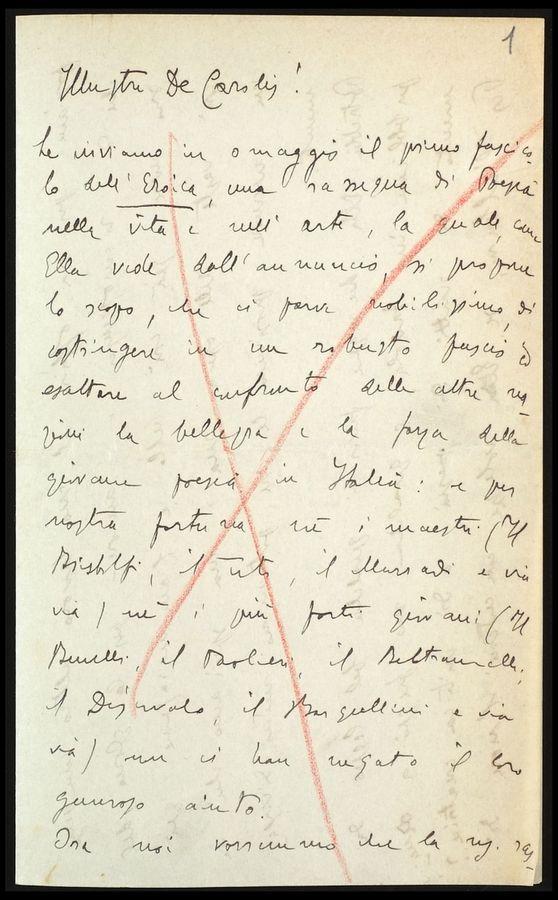 1
Illustre De Carolis!
Le inviamo in omaggio il primo fascico-
lo dell' Eroica, una rassegna di Poesia
nella vita e nell' arte, la quale, come
Ella vede dall' annuncio, si propone
lo scopo, che ci parve nobilissimo, di
costringere in un robusto fascio ed
esaltare al confronto delle altre na-
zioni la bellezza e la forza della
giovane poesia in Italia: e per
nostra fortuna nè i maestri (Il
Bistolfi, il , il Marradi e via
via) nè i più forti giovani (Il
Benelli, il Paolieri, il Beltramelli,
il , il Bargellini e via
via) non ci han negato il loro
generoso aiuto.
Ora noi vorremmo che la ns. ras-